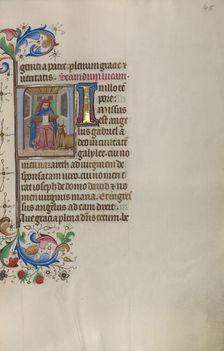 45
geniti a patre plenum gracie &
ueritatis. Secundum lucam.
In illo tem
pore.
Missus
est an
gelus
gabriel a
deo in ciuitatem
galylee cui no
men nazareth ad uirginem de
sponsatam uiro cui nomen e
rat ioseph de domo dauid & no
men uirginis maria. Et ingres
sus angelus ad eam dixit. a
ue gracia plena dominus tecum. be